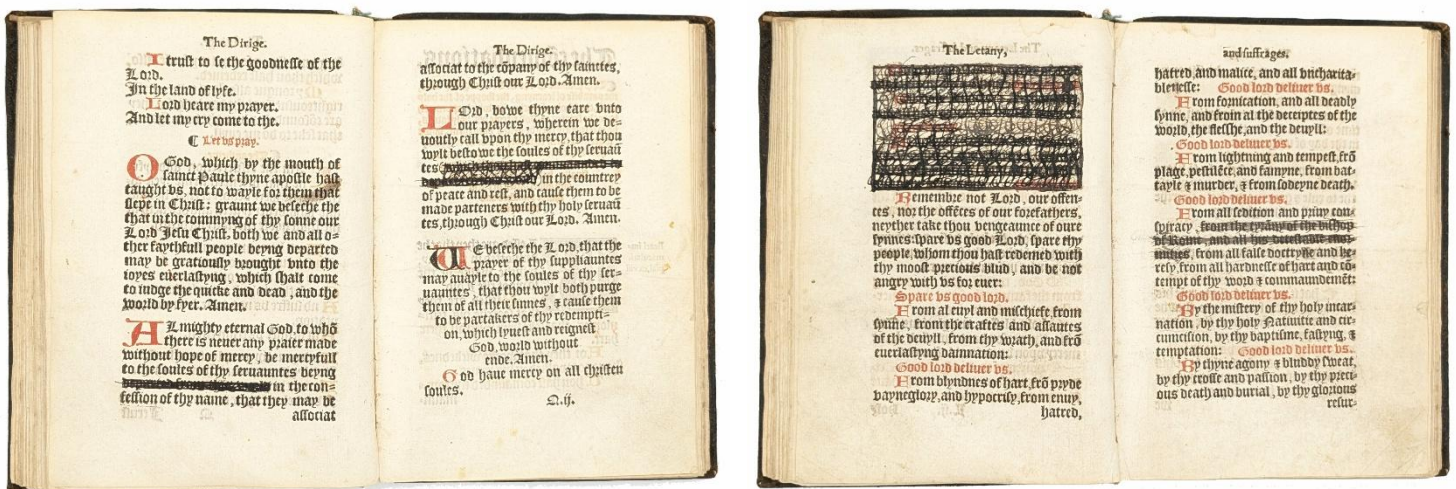 The Dirige.
I trust to se the goodnesse of the
Lord.
In the land of lyfe.
Lord heare my prayer.
And let my cry come to the.
¶ Let vs pray.
O God, which by the mouth of
sainct Paule thyne apostle hast
taught vs, not to wayle for them that
slepe in Christ: graunt we beseche the
that in the commyng of thy sonne our
Lord Jesu Christ, both we and all o-
ther faythfull people beyng departed
may be gratiously brought vnto the
ioyes euerlastyng, which shalt come
to iudge the quicke and dead, and the
world by fyer. Amen.
ALmighty eternal God, to whõ
there is neuer any praier made
without hope of mercy, be mercyfull
to the soules of thy seruauntes beyng
departed from this world in the con-
fession of thy name, that they may be
associat
The Dirige.
associat to the cõpany of thy sainctes,
through Christ our Lord. Amen.
LOrd, bowe thyne eare vnto
our prayers, wherein we de-
uoutly call vpon thy mercy, that thou
wylt bestowe the soules of thy seruaũ
tes
, in the countrey
of peace and rest, and cause them to be
made parteners with thy holy seruaũ
tes, through Christ our Lord. Amen.
WE beseche the Lord, that the
prayer of thy suppliauntes
may auayle to the soules of thy ser-
uauntes, that thou wylt both purge
them of all their sinnes, & cause them
to be partakers of thy redempti-
on, which lyuest and reignest
God, world without
ende. Amen.
God haue mercy on all christen
soules.
Q.ij.
The Letany,
Remembre not Lord, our offen-
ces, nor the offẽces of our forefathers,
neyther take thou vengeaunce of oure
synnes: spare vs good Lord, spare thy
people, whom thou hast redemed with
thy moost precious blud, and be not
angry with vs for euer:
Spare vs good lord.
From al euyl and mischiefe, from
synne, from the craftes and assautes
of the deuyll, from thy wrath, and frõ
euerlastyng damnation:
Good lord deliuer vs.
From blyndnes of hart, frõ pryde
vayneglory, and hypocrisy, from enuy,
hatred,
and suffrages.
hatred, and malice, and all vncharita-
blenesse: Good lord deliuer vs.
From fornication, and all deadly
synne, and from al the deceyptes of the
world, the flesshe, and the deuyll:
Good lord deliuer vs.
From lightning and tempest, frõ
plage, pestilẽce, and famyne, from bat-
tayle & murder, & from sodeyne death.
Good lord deliuer vs.
From all sedition and priuy con-
spiracy, from the tyrãny of the bisshop
of Rome, and all his detestable enor-
mities, from all false doctryne and he-
resy, from all hardnesse of hart and cõ-
tempt of thy word & commaundemẽt:
Good lord deliuer vs.
By the mistery of thy holy incar-
nation, by thy holy Natiuitie and cir-
cumcision, by thy baptisme, fastyng, &
temptation: Good lord deliuer vs.
By thyne agony & bluddy sweat,
by thy crosse and passion, by thy preci-
ous death and burial, by thy glorious
resur-